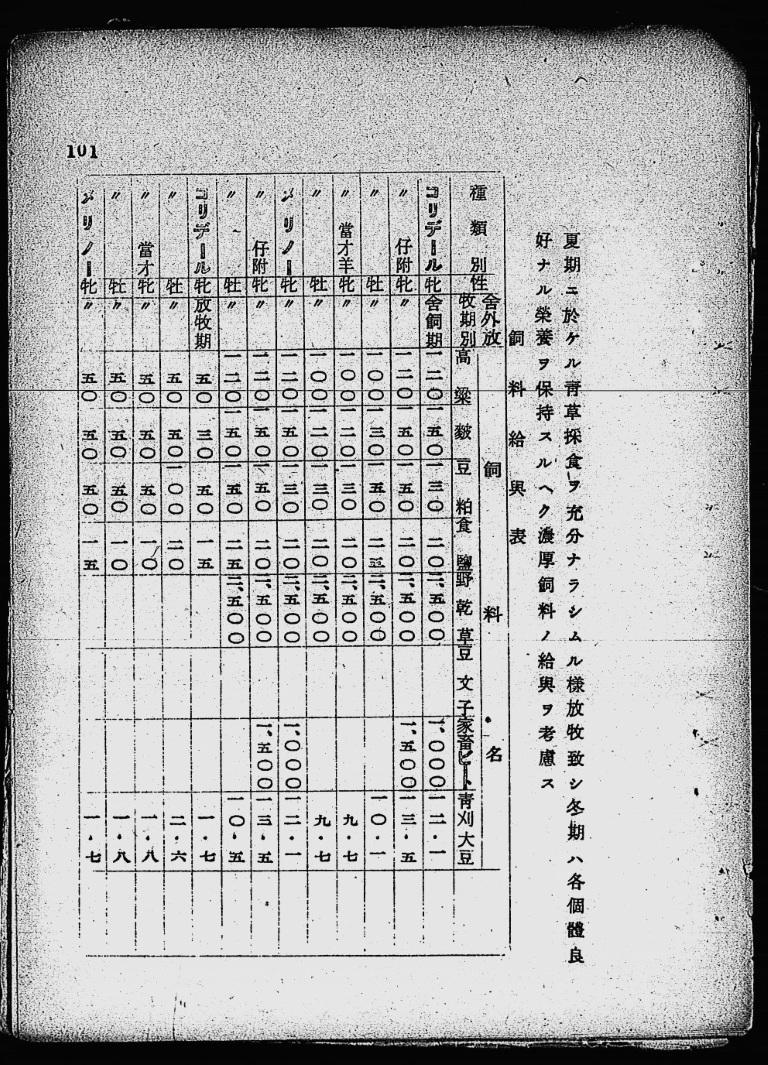 夏期ニ於ケル靑草採食ヲ充分ナラシムル様放牧致シ冬期ハ各個體良
好ナル榮養ヲ保持スルヘク濃厚飼料ノ給與ヲ考慮ス
飼料給與表
種類別 性 舍外放牧期別 飼料名
高粱 麬 豆粕 食鹽 野乾草 豆文子 家畜ビート 靑刈大豆
コリデール 牝 舍飼期 一二〇 一五〇 一三〇 二〇 二、五〇〇 一、〇〇〇 一二・一
〃 仔附 牝 〃 一二〇 一五〇 一五〇 二〇 二、五〇〇 一、五〇〇 一三・五
〃 牡 〃 一〇〇 一三〇 一五〇 二五 二、五〇〇 一〇・一
〃 當才羊 牝 〃 一〇〇 一二〇 一三〇 二〇 二、五〇〇 九・七
〃 牡 〃 一〇〇 一二〇 一三〇 二〇 二、五〇〇 九・七
メリノー 牝 〃 一二〇 一五〇 一三〇 二〇 二、五〇〇 一、〇〇〇 一二・一
〃 仔附 牝 〃 一二〇 一五〇 一五〇 二〇 二、五〇〇 一、五〇〇 一三・五
〃 牡 〃 一二〇 一五〇 一五〇 二五 二、五〇〇 一〇・五
コリデール 牝 放牧期 五〇 三〇 五〇 一五 一・七
〃 牡 〃 五〇 五〇 一〇〇 二〇 二・六
〃 當才 牝 〃 五〇 五〇 五〇 一〇 一・八
〃 牡 〃 五〇 五〇 五〇 一〇 一・八
メリノー 牝 〃 五〇 五〇 五〇 一五 一・七
101